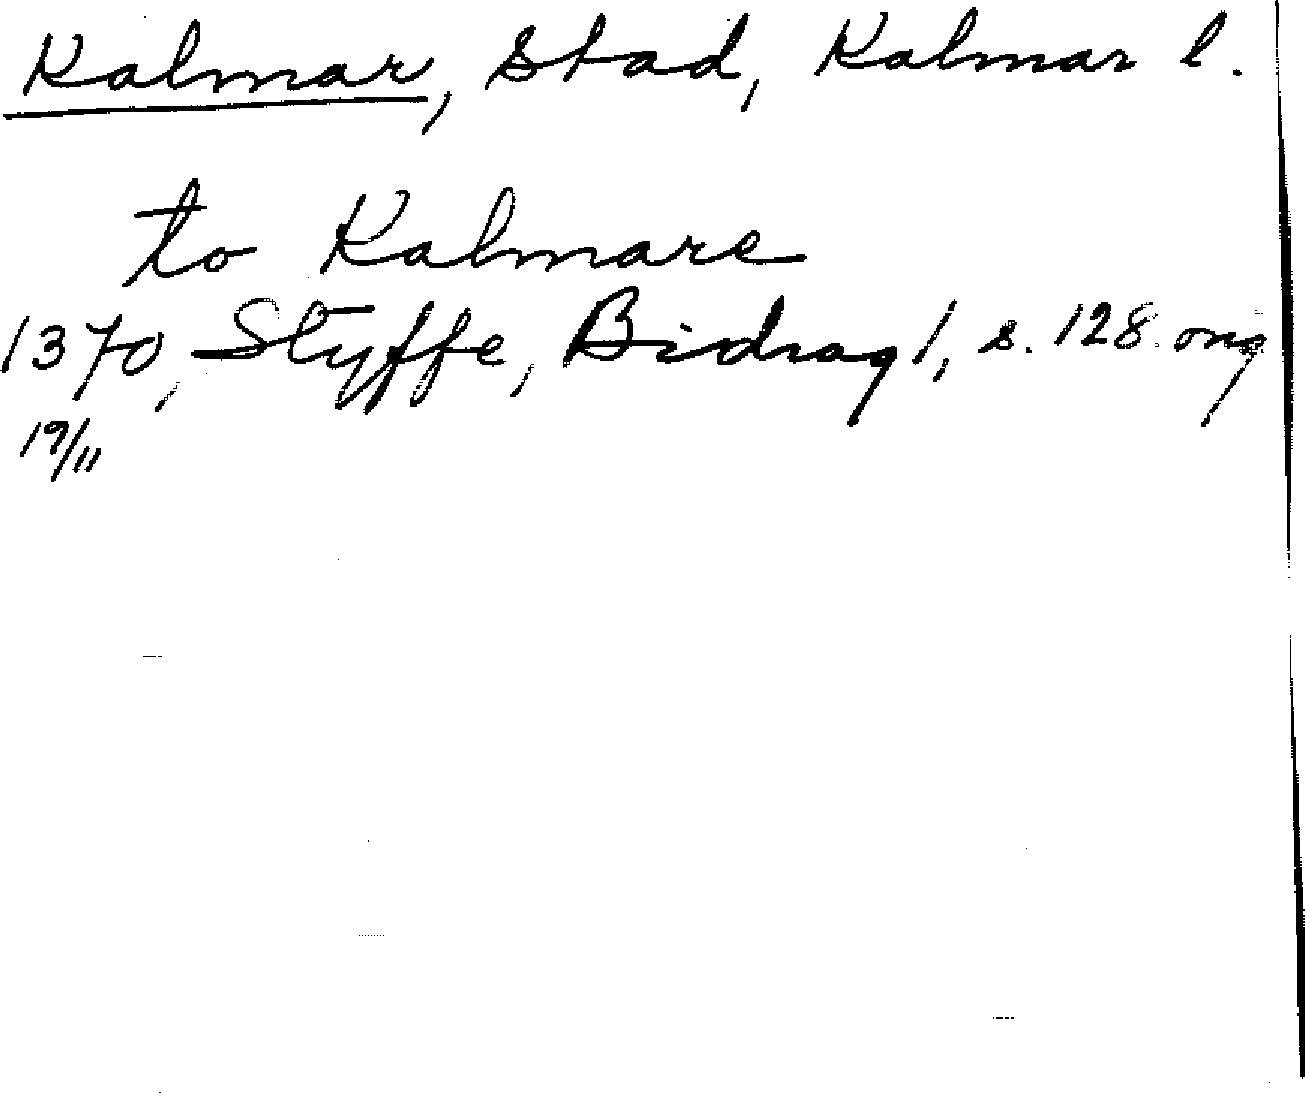 Kalmar, Stad, Kalmar l.
to Kalmare
1370, Styffe, Bidrag 1, s. 128. orig
19/11